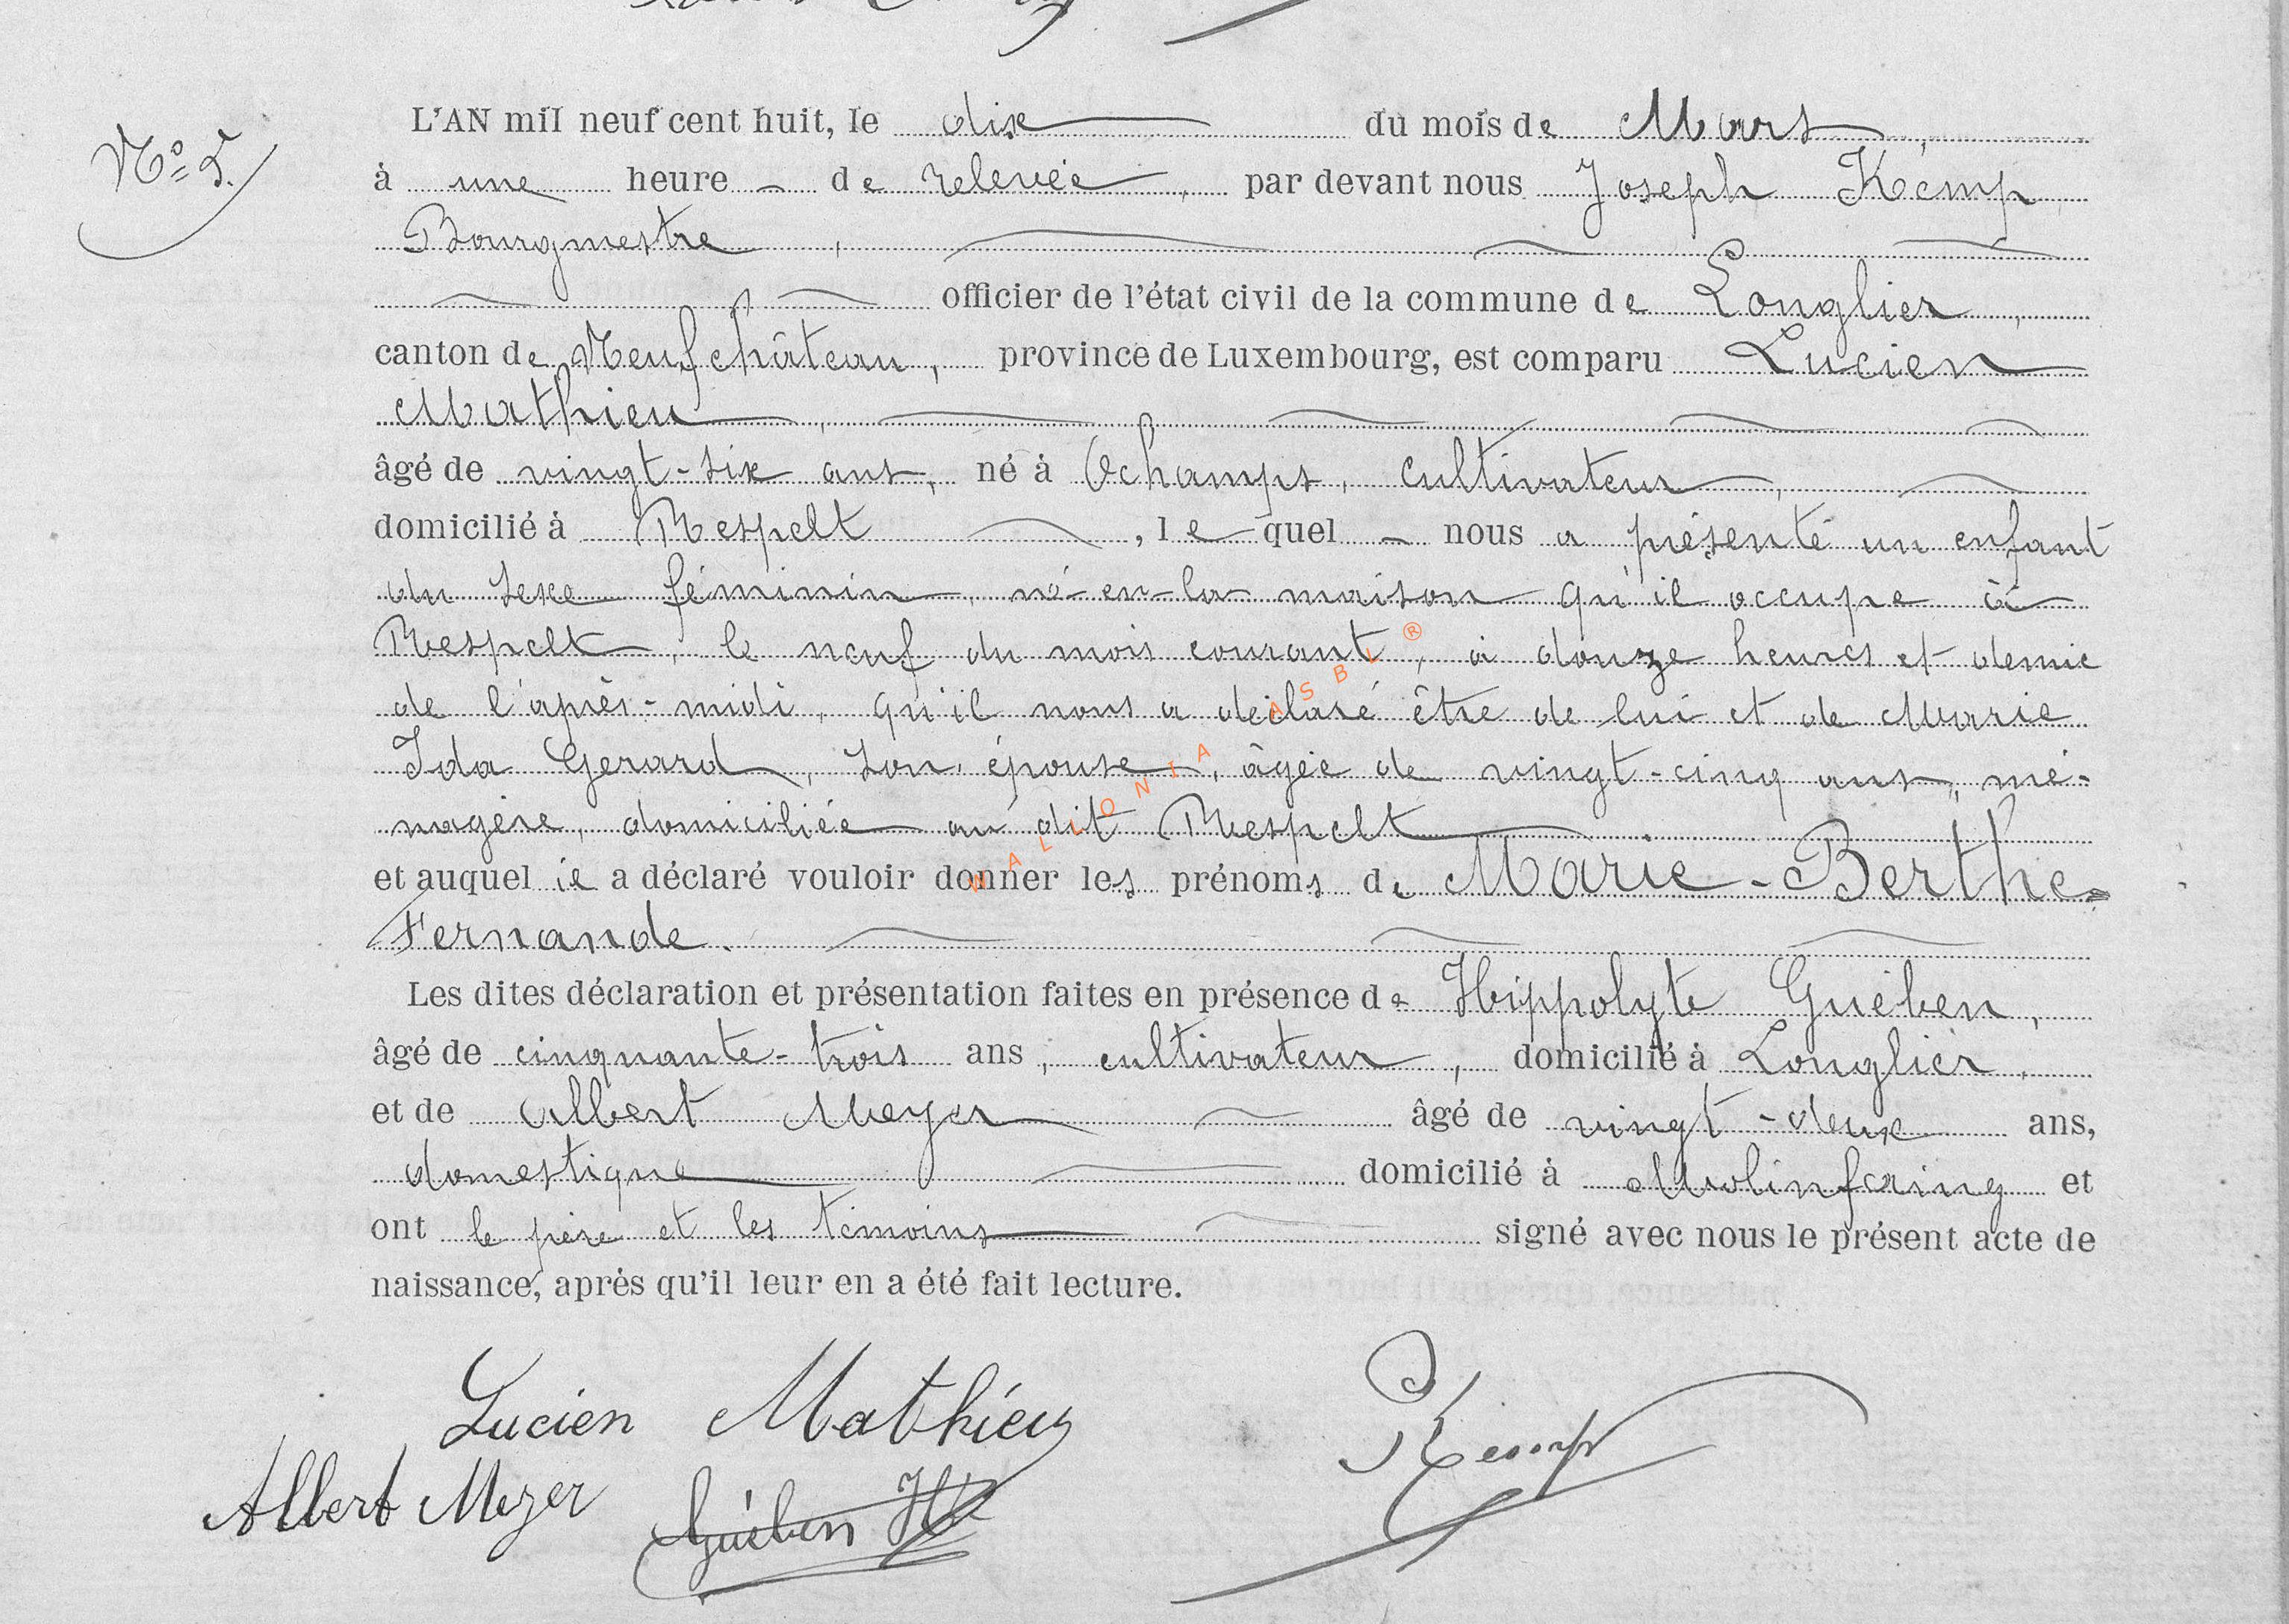 N° 5.
L'AN mil neuf cent huit, le dix du mois de Mars,
à une heure de relevée, par devant nous Joseph Kemp
Bourgmestre,
officier de l'état civil de la commune de Longlier,
canton de Neufchâteau, province de Luxembourg, est comparu Lucien
Mathieu,
âgé de vingt-six ans, né à Ochamps, cultivateur,
domicilié à Respelt, lequel nous a présenté un enfant
du sexe féminin, né en la maison qu'il occupe à
Respelt, le neuf du mois courant, à douze heures et demie
de l'après-midi, qu'il nous a déclaré être de lui et de Marie
Ida Gerard, son épouse, âgée de vingt-cinq ans, mé-
nagère, domiciliée au dit Respelt
et auquel il a déclaré vouloir donner les prénoms de Marie-Berthe-
Fernande.
Les dites déclaration et présentation faites en présence de Hippolyte Guében,
âgé de cinquante-trois ans, cultivateur, domicilié à Longlier,
et de Albert Meyer âgé de vingt-deux ans,
domestique domicilié à Molinfaing et
ont le père et les témoins signé avec nous le présent acte de
naissance, après qu'il leur en a été fait lecture.
Lucien Mathieu
Kemp
Albert Meyer Guében H
WALLONIA ASBL ®